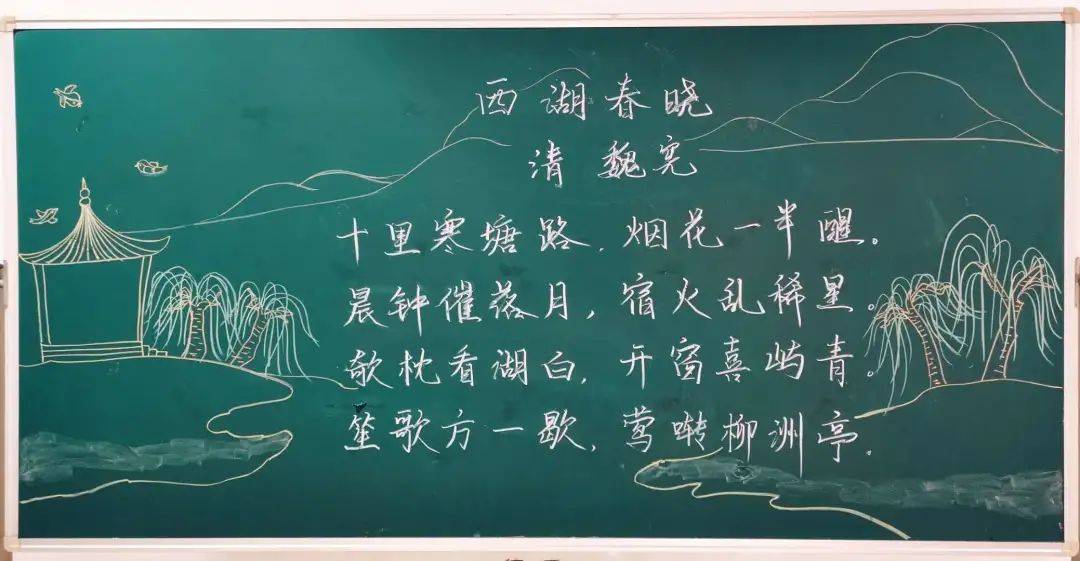 西湖春晓
清 魏宪
十里寒塘路，烟花一半醒。
晨钟催落月，宿火乱稀星。
欹枕看湖白，开窗喜屿青。
笙歌方一歇，莺啭柳洲亭。